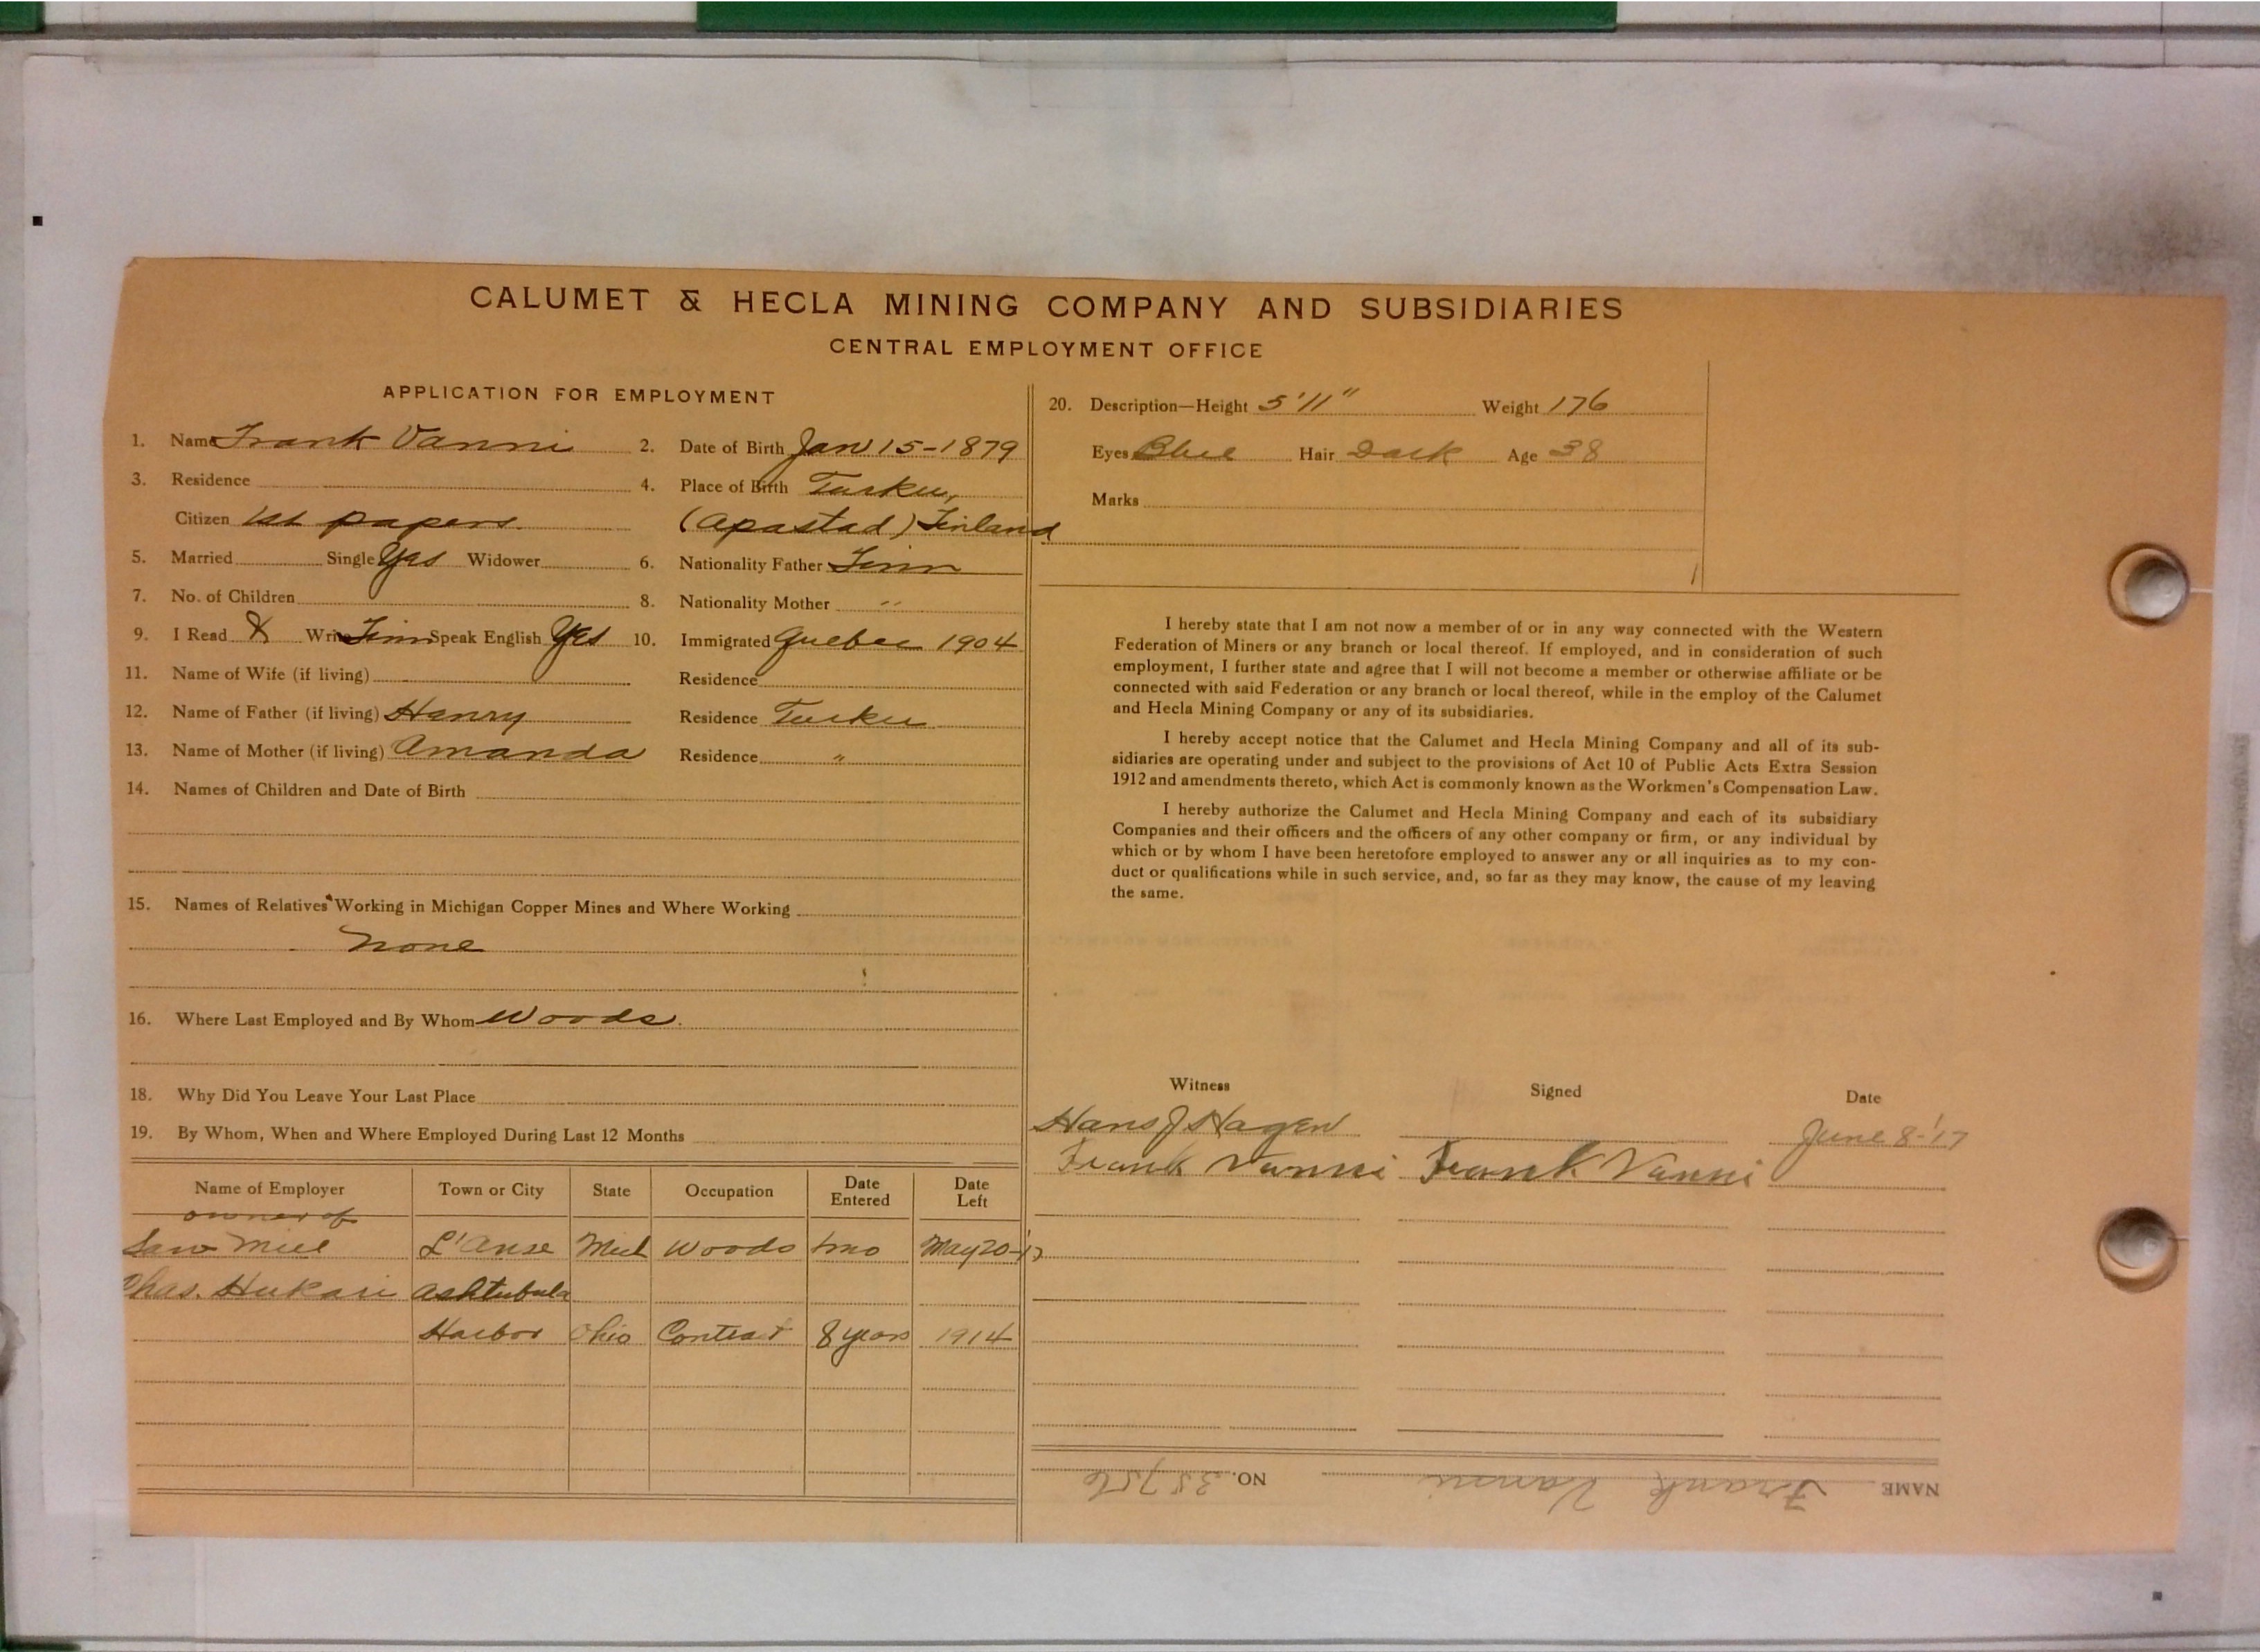 CALUMET & HECLA MINING COMPANY AND SUBSIDIARIES
CENTRAL EMPLOYMENT OFFICE
APPLICATION FOR EMPLOYMENT
1. Name Frank Vanni 2. Date of Birth Jan 15-1879
3. Residence 4. Place of Birth Turku,
Citizen 1st papers. (Apastad) Finland
5. Married Single Yes Widower 6. Nationality Father Finn
7. No. of Children 8. Nationality Mother "
9. I Read X Write Finn Speak English Yes 10. Immigrated Quebec 1904
11. Name of Wife (if living) Residence
12. Name of Father (if living) Henry Residence Turku
13. Name of Mother (if living) Amanda Residence "
14. Names of Children and Date of Birth
15. Names of Relatives Working in Michigan Copper Mines and Where Working
None
16. Where Last Employed and By Whom Woods.
18. Why Did You Leave Your Last Place
19. By Whom, When and Where Employed During Last 12 Months
Name of Employer Town or City State Occupation Date Entered Date Left
owner of
Saw Mill L'Anse Mich Woods May 20-17
Chas. Hukari Ashtubula
Harbor Ohio Contract 8 years 1914
20. Description—Height 5'11" Weight 176
Eyes Blue Hair Dark Age 38
Marks
I hereby state that I am not now a member of or in any way connected with the Western
Federation of Miners or any branch or local thereof. If employed, and in consideration of such
employment, I further state and agree that I will not become a member or otherwise affiliate or be
connected with said Federation or any branch or local thereof, while in the employ of the Calumet
and Hecla Mining Company or any of its subsidiaries.
I hereby accept notice that the Calumet and Hecla Mining Company and all of its sub-
sidiaries are operating under and subject to the provisions of Act 10 of Public Acts Extra Session
1912 and amendments thereto, which Act is commonly known as the Workmen's Compensation Law.
I hereby authorize the Calumet and Hecla Mining Company and each of its subsidiary
Companies and their officers and the officers of any other company or firm, or any individual by
which or by whom I have been heretofore employed to answer any or all inquiries as to my con-
duct or qualifications while in such service, and, so far as they may know, the cause of my leaving
the same.
Witness Signed Date
Hans J Hagen June 8-'17
Frank Vanni Frank Vanni
NAME Frank Vanni NO. 35756